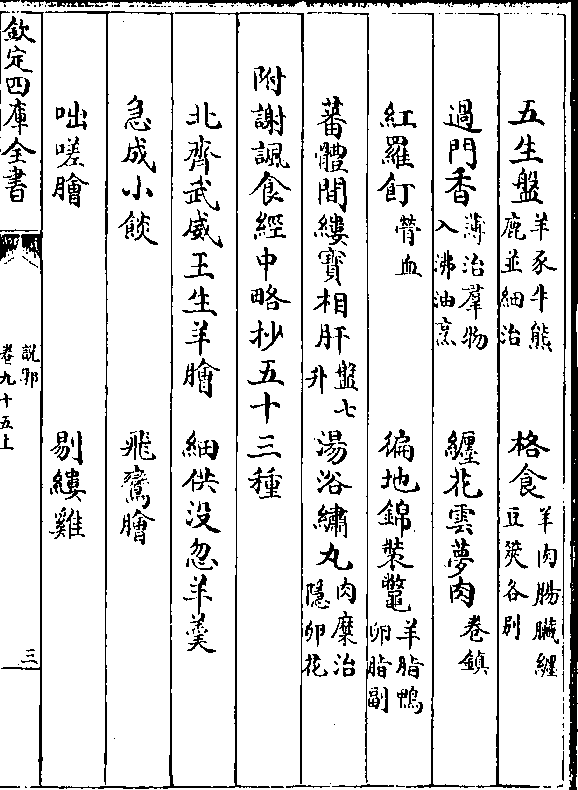 五生盤 羊豕牛熊鹿並細治 格食 羊肉腸臟纒豆莢各别
過門香 薄治羣物入沸油烹 纒花雲夢肉 卷鎮
紅羅飣 膋血 徧地錦裝鼈 羊脂鴨卵脂副
蕃體間縷寶相肝 盤七升 湯浴繡丸 肉糜治隱卵花
附謝諷食經中略抄五十三種
北齊武威王生羊膾 細供没忽羊羹
急成小餤 飛鸞膾
咄嗟膾 剔縷雞
欽定四庫全書 說郛 卷九十五上 三